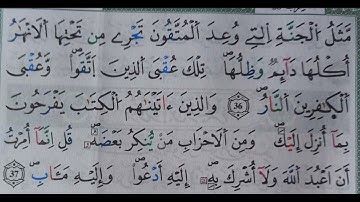 مَّثَلُ اُ۬لْجَنَّةِ اِ۬لتِے وُعِدَ اَ۬لْمُتَّقُونَ تَجْرِے مِن تَحْتِهَا اَ۬لَانْهَٰرُ
أُكْلُهَا دَآئِمٞ وَظِلُّهَاۖ تِلْكَ عُقْبَى اَ۬لذِينَ اَ۪تَّقَواْۖ وَّعُقْبَى
اَ۬لْكٰ۪فِرِينَ اَ۬لنَّارُۖ 36 وَالذِينَ ءَاتَيْنَٰهُمُ اُ۬لْكِتَٰبَ يَفْرَحُونَ
بِمَآ أُنزِلَ إِلَيْكَۖ وَمِنَ اَ۬لَاحْزَابِ مَنْ يُّنكِرُ بَعْضَهُۥۖ قُلِ اِنَّمَآ أُمِرْتُ
أَنَ اَعْبُدَ اَ۬للَّهَ وَلَآ أُشْرِكَ بِهِۦٓۖ إِلَيْهِ أَدْعُواْۖ وَإِلَيْهِ مَـَٔابِۖ 37